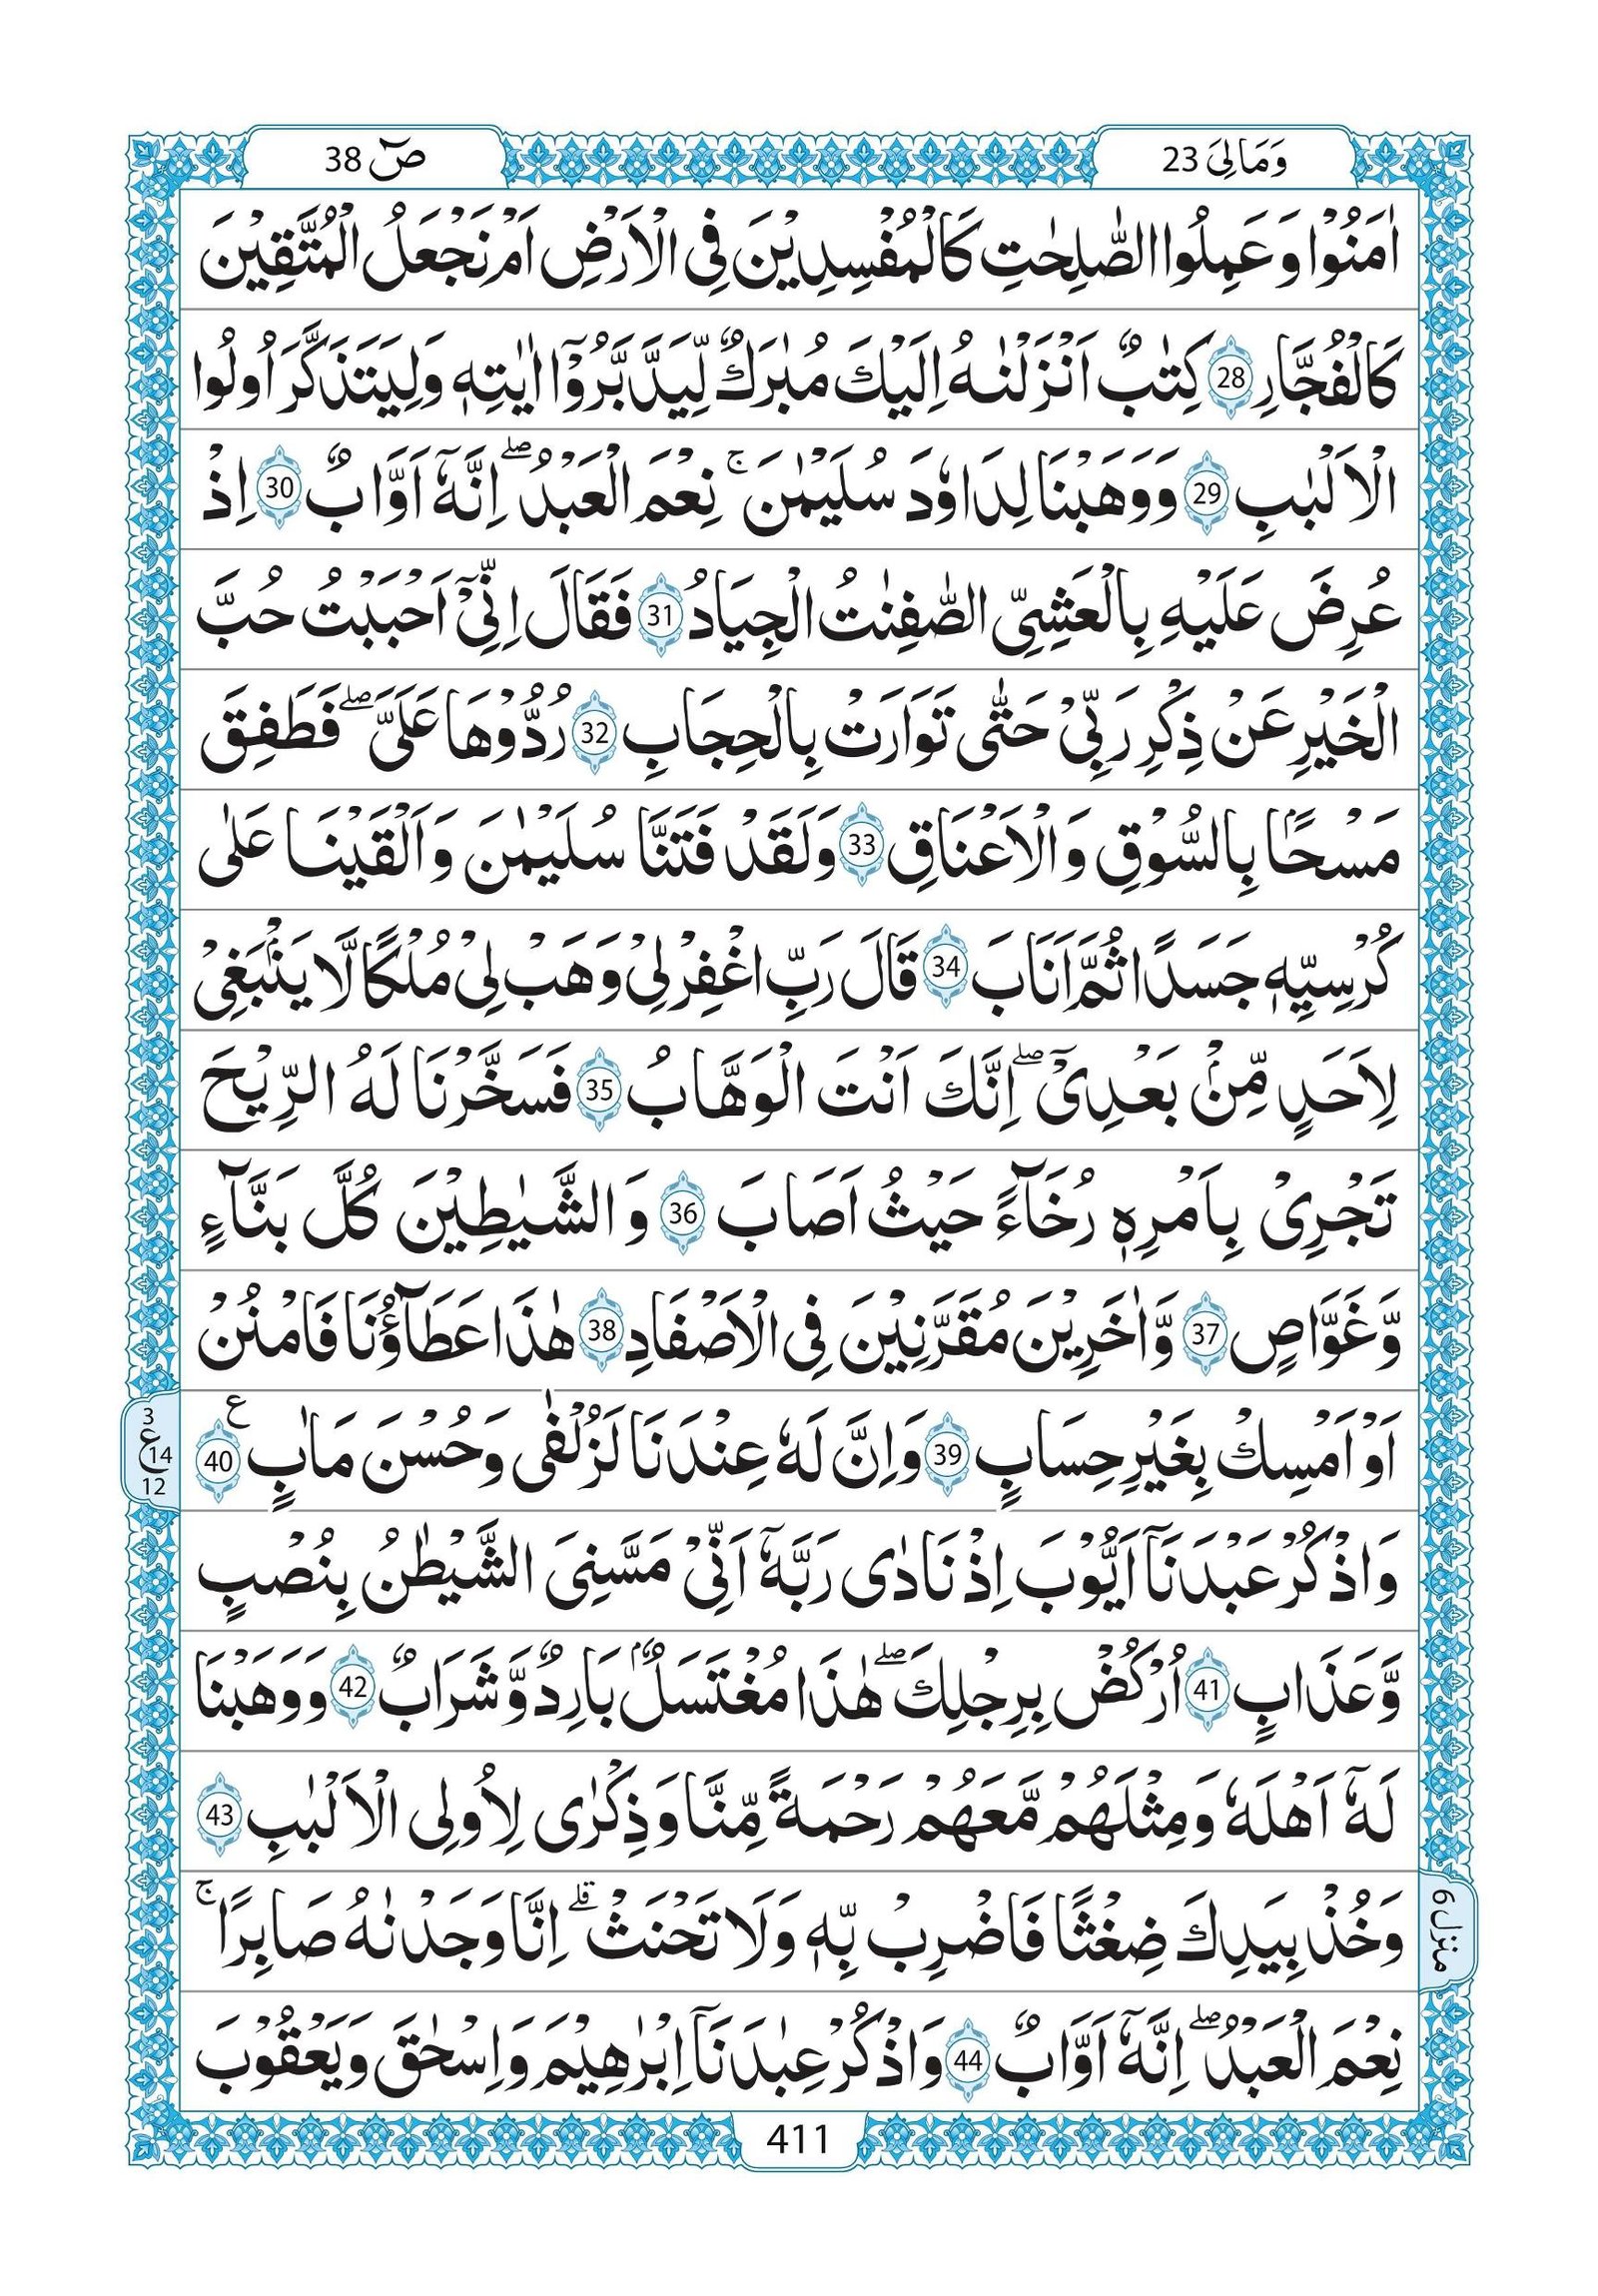 وَمَالِىَ 23
صٓ 38
اٰمَنُوْا وَعَمِلُوا الصّٰلِحٰتِ كَالْمُفْسِدِيْنَ فِى الْاَرْضِ اَمْ نَجْعَلُ الْمُتَّقِيْنَ
كَالْفُجَّارِ 28 كِتٰبٌ اَنْزَلْنٰهُ اِلَيْكَ مُبٰرَكٌ لِّيَدَّبَّرُوْٓا اٰيٰتِهٖ وَلِيَتَذَكَّرَ اُولُوا
الْاَلْبٰبِ 29 وَوَهَبْنَا لِدَاوٗدَ سُلَيْمٰنَ ۚ نِعْمَ الْعَبْدُ ۖ اِنَّهٗٓ اَوَّابٌ 30 اِذْ
عُرِضَ عَلَيْهِ بِالْعَشِىِّ الصّٰفِنٰتُ الْجِيَادُ 31 فَقَالَ اِنِّىْٓ اَحْبَبْتُ حُبَّ
الْخَيْرِ عَنْ ذِكْرِ رَبِّىْ حَتّٰى تَوَارَتْ بِالْحِجَابِ 32 رُدُّوْهَا عَلَىَّ ۖ فَطَفِقَ
مَسْحًۢا بِالسُّوْقِ وَالْاَعْنَاقِ 33 وَلَقَدْ فَتَنَّا سُلَيْمٰنَ وَاَلْقَيْنَا عَلٰى
كُرْسِيِّهٖ جَسَدًا ثُمَّ اَنَابَ 34 قَالَ رَبِّ اغْفِرْ لِىْ وَهَبْ لِىْ مُلْكًا لَّا يَنْۢبَغِىْ
لِاَحَدٍ مِّنْۢ بَعْدِىْٓ ۖ اِنَّكَ اَنْتَ الْوَهَّابُ 35 فَسَخَّرْنَا لَهُ الرِّيْحَ
تَجْرِىْ بِاَمْرِهٖ رُخَآءً حَيْثُ اَصَابَ 36 وَالشَّيٰطِيْنَ كُلَّ بَنَّآءٍ
وَّغَوَّاصٍ 37 وَّاٰخَرِيْنَ مُقَرَّنِيْنَ فِى الْاَصْفَادِ 38 هٰذَا عَطَآؤُنَا فَامْنُنْ
اَوْ اَمْسِكْ بِغَيْرِ حِسَابٍ 39 وَاِنَّ لَهٗ عِنْدَنَا لَزُلْفٰى وَحُسْنَ مَاٰبٍ 40 ع
3
ع 14
12
وَاذْكُرْ عَبْدَنَآ اَيُّوْبَ اِذْ نَادٰى رَبَّهٗٓ اَنِّىْ مَسَّنِىَ الشَّيْطٰنُ بِنُصْبٍ
وَّعَذَابٍ 41 اُرْكُضْ بِرِجْلِكَ ۖ هٰذَا مُغْتَسَلٌۢ بَارِدٌ وَّشَرَابٌ 42 وَوَهَبْنَا
لَهٗٓ اَهْلَهٗ وَمِثْلَهُمْ مَّعَهُمْ رَحْمَةً مِّنَّا وَذِكْرٰى لِاُولِى الْاَلْبٰبِ 43
وَخُذْ بِيَدِكَ ضِغْثًا فَاضْرِبْ بِّهٖ وَلَا تَحْنَثْ ۗ اِنَّا وَجَدْنٰهُ صَابِرًا ۚ
منزل 6
نِعْمَ الْعَبْدُ ۖ اِنَّهٗٓ اَوَّابٌ 44 وَاذْكُرْ عِبٰدَنَآ اِبْرٰهِيْمَ وَاِسْحٰقَ وَيَعْقُوْبَ
411